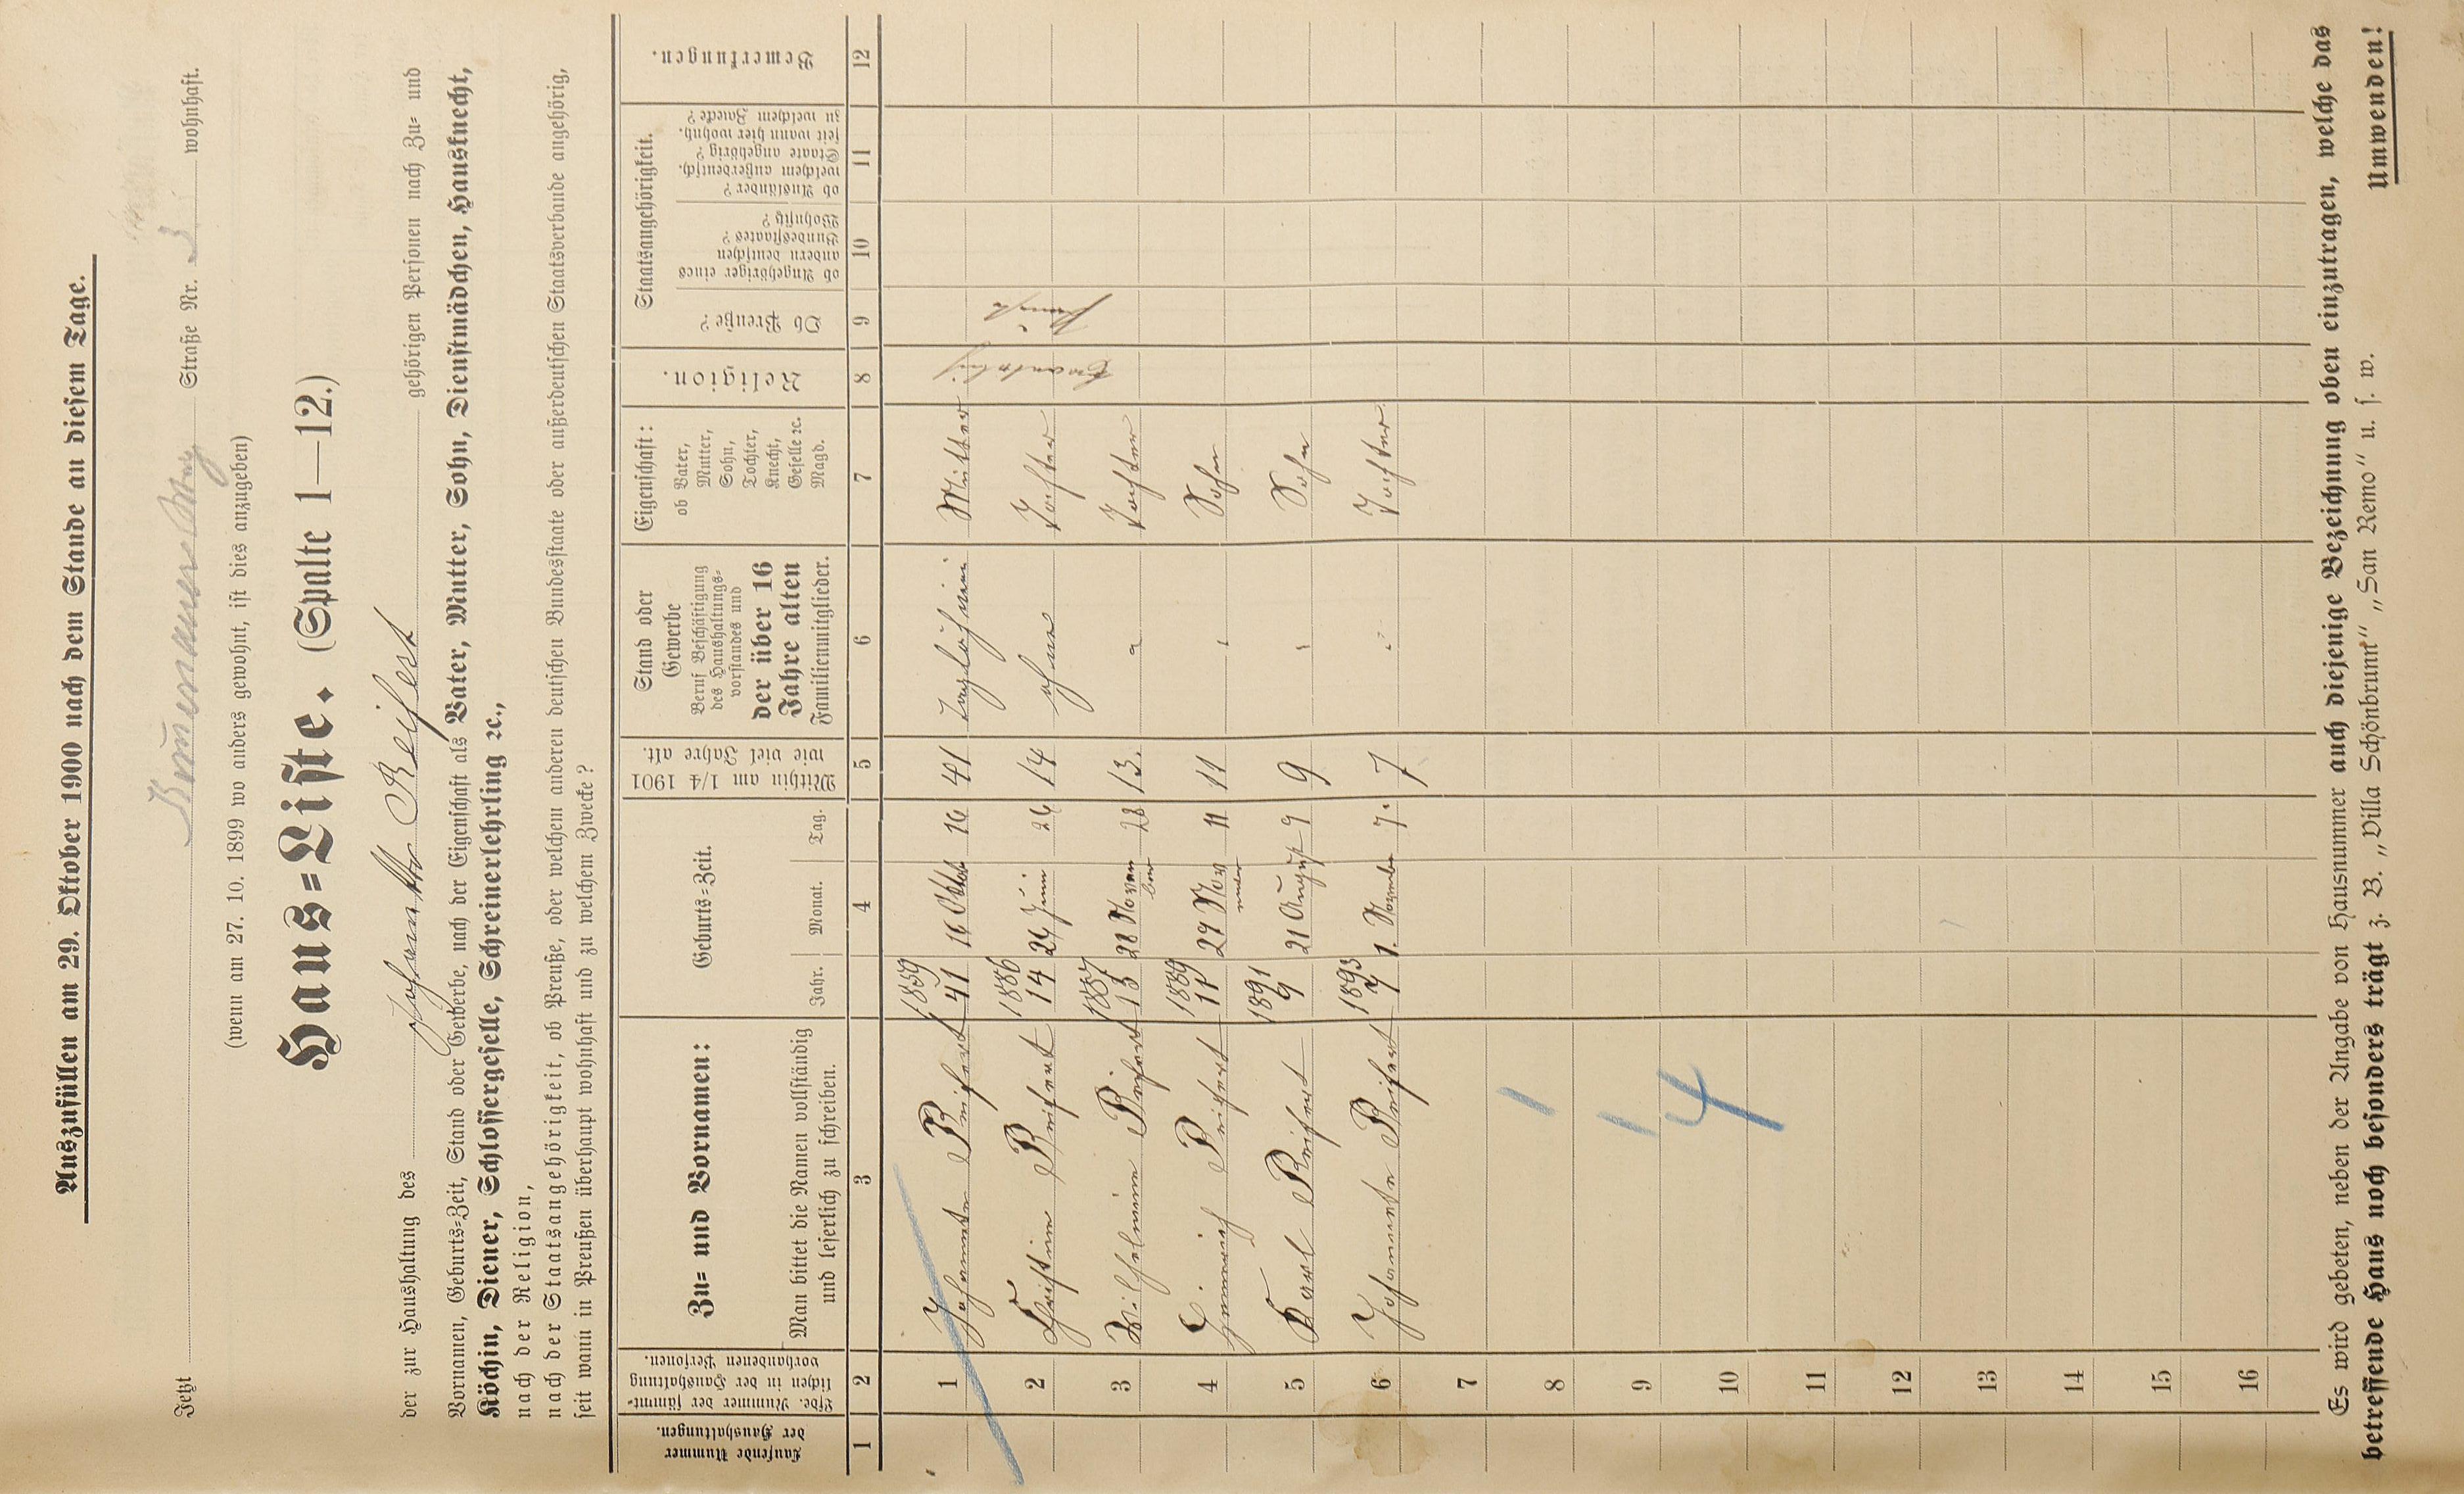 Auszufüllen am 29. Oktober 1900 nach dem Stande an diesem Tage.
Jetzt Straße Nr. 3 wohnhaft.
(wenn am 27. 10. 1899 wo anders gewohnt, ist dies anzugeben)
Haus=Liste. (Spalte 1—12.)
der zur Haushaltung des Reifert gehörigen Personen nach Zu= und
Vornamen, Geburts=Zeit, Stand oder Gewerbe, nach der Eigenschaft als Vater, Mutter, Sohn, Dienstmädchen, Hausknecht,
Köchin, Diener, Schlossergeselle, Schreinerlehrling ꝛc.,
nach der Religion,
nach der Staatsangehörigkeit, ob Preuße, oder welchem anderen deutschen Bundesstaate oder außerdeutschen Staatsverbande angehörig,
seit wann in Preußen überhaupt wohnhaft und zu welchem Zwecke?
Laufende Nummer der Haushaltungen.
Lfde. Nummer der sämmtlichen in der Haushaltung vorhandenen Personen.
Zu= und Vornamen:
Man bittet die Namen vollständig
und leserlich zu schreiben.
Geburts=Zeit.
Jahr. Monat. Tag.
Mithin am 1/4 1901
wie viel Jahre alt.
Stand oder
Gewerbe
Beruf Beschäftigung
des Haushaltungs=
vorstandes und
der über 16
Jahre alten
Familienmitglieder.
Eigenschaft:
ob Vater,
Mutter,
Sohn,
Tochter,
Knecht,
Geselle ꝛc.
Magd.
Religion.
Staatsangehörigkeit.
Ob Preuße?
ob Angehöriger eines
andern deutschen
Bundesstaates?
Wohnsitz?
ob Ausländer?
welchem außerdeutsch.
Staate angehörig?
seit wann hier wohnh.
zu welchem Zwecke?
Bemerkungen.
1 2 3 4 5 6 7 8 9 10 11 12
1 Johannette Reifert 1859 41 16 Oktob 16 41 Taglöhnerin Mutter
2 Christine Reifert 1886 14 24 Juni 24 14 ohne Tochter
3 Wilhelmine Reifert 1887 13 28 November 28 13. " Tochter
4 Heinrich Reifert 1889 11 29 November 11 11 " Sohn
5 Karl Reifert 1891 9 21 August 9 9 " Sohn
6 Johannette Reifert 1893 7 1. November 7. 7 " Tochter
7
8
9
10
11
12
13
14
15
16
Es wird gebeten, neben der Angabe von Hausnummer auch diejenige Bezeichnung oben einzutragen, welche das
betreffende Haus noch besonders trägt z. B. „Villa Schönbrunn" „San Remo" u. s. w.
Umwenden!